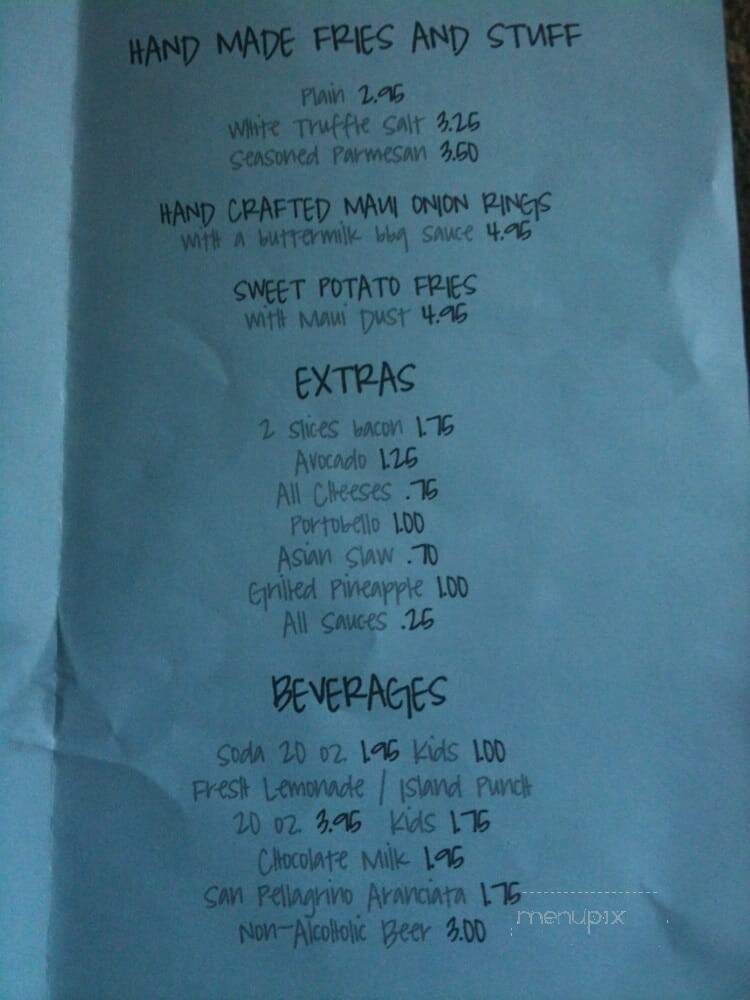 HAND MADE FRIES AND STUFF
Plain 2.95
White Truffle Salt 3.25
Seasoned Parmesan 3.50
HAND CRAFTED MAUI ONION RINGS
with a buttermilk bbq sauce 4.95
SWEET POTATO FRIES
with Maui Dust 4.95
EXTRAS
2 slices bacon 1.75
Avocado 1.25
All Cheeses .75
Portobello 1.00
Asian Slaw .70
Grilled Pineapple 1.00
All Sauces .25
BEVERAGES
Soda 20 oz. 1.95 Kids 1.00
Fresh Lemonade / Island Punch
20 oz. 3.95 Kids 1.75
Chocolate Milk 1.95
San Pellagrino Aranciata 1.75
Non-Alcoholic Beer 3.00
menupix